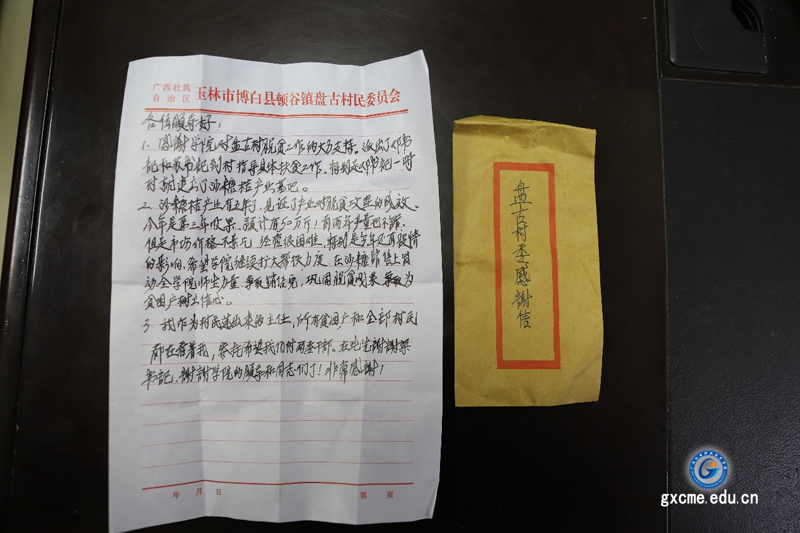 广西壮族
自治区
玉林市博白县顿谷镇盘古村民委员会
各位领导好:
1、感谢学院对盘古村脱贫工作的大力支持。派出了邓书
记和 书记到村指导具体扶贫工作。特别是邓书记一对
村 建立了沙糖桔产业基地。
2、沙糖桔产业有五年了,见证了产业对脱贫攻坚的成效。
今年是第三年收果,预计有50万斤!前两年产量也不错,
但是市场价格不景气,经营很困难,特别是今年还有疫情
的影响,希望学院继续扩大帮扶力度,在沙糖销售上发
动全学院师生力量,争取销售完,巩固脱贫成果,争取为
贫困户树立信心。
3、我作为村民选出来的主任,所有贫困户和全部村民
都在看着我,委托希望我们村两委干部。在此先谢谢梁
书记,谢谢学院的领导和同志们了!非常感谢!
年 月 日
第 页
盘古村委感謝信
gxcme.edu.cn